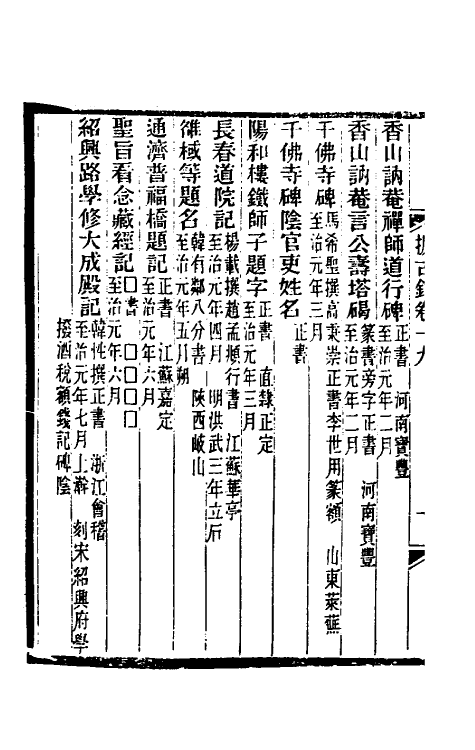 攈古錄卷十九
香山訥菴禪師道行碑
正書　河南寶豐
至治元年二月
香山訥菴言公壽塔碣
篆書旁字正書　河南寶豐
至治元年二月
千佛寺碑
馬希聖撰高秉崇正書李世用篆額　山東萊蕪
至治元年三月
千佛寺碑陰官吏姓名
正書
陽和樓鐵師子題字
正書　直隸正定
至治元年三月
長春道院記
楊載撰趙孟頫行書　江蘇華亭
至治元年四月　明洪武三年立石
雒棫等題名
韓有鄰八分書　陝西岐山
至治元年五月朔
通濟普福橋題記
正書　江蘇嘉定
至治元年六月
聖旨看念藏經記
□書　□□□□
至治元年六月
紹興路學修大成殿記
韓性撰正書　浙江會稽
至治元年七月上澣　刻宋紹興府學
撥酒稅額錢記碑陰